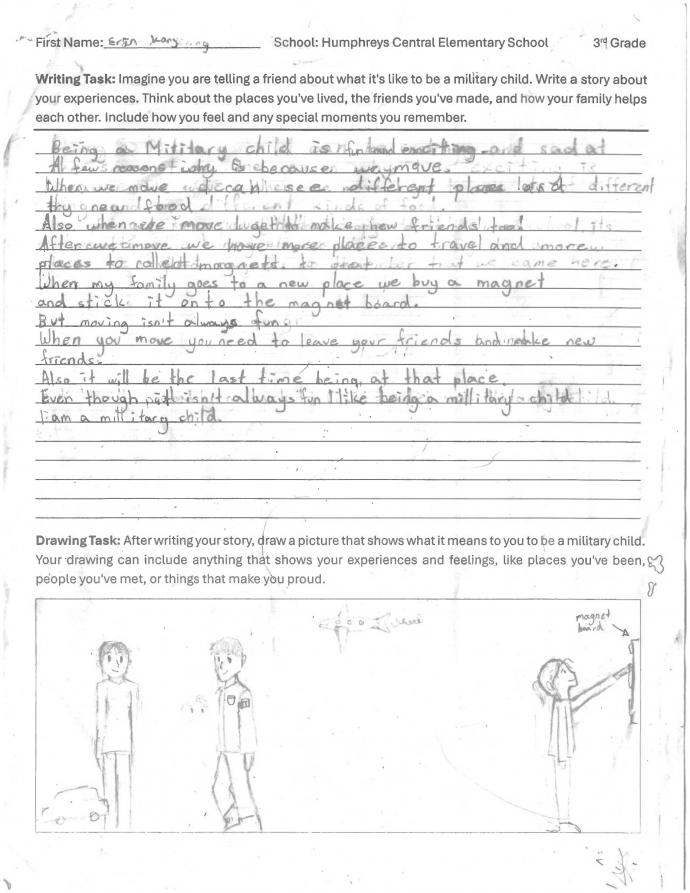 First Name: Erin Kang
School: Humphreys Central Elementary School
3rd Grade
Writing Task: Imagine you are telling a friend about what it's like to be a military child. Write a story about
your experiences. Think about the places you've lived, the friends you've made, and how your family helps
each other. Include how you feel and any special moments you remember.
Being a Military child is fun and exciting and sad at
A few reasons is because we move.
When we move we can see different places lots of different
and food
Also when we move I get to make new friends too!
After we move we have more places to travel and more
places to collect magnets. to that we came here.
When my family goes to a new place we buy a magnet
and stick it onto the magnet board.
But moving isn't always fun.
When you move you need to leave your friends and make new
friends.
Also it will be the last time being at that place.
Even though it isn't always fun I like being a millitary child
I am a millitary child.
Drawing Task: After writing your story, draw a picture that shows what it means to you to be a military child.
Your drawing can include anything that shows your experiences and feelings, like places you've been,
people you've met, or things that make you proud.
magnet
board